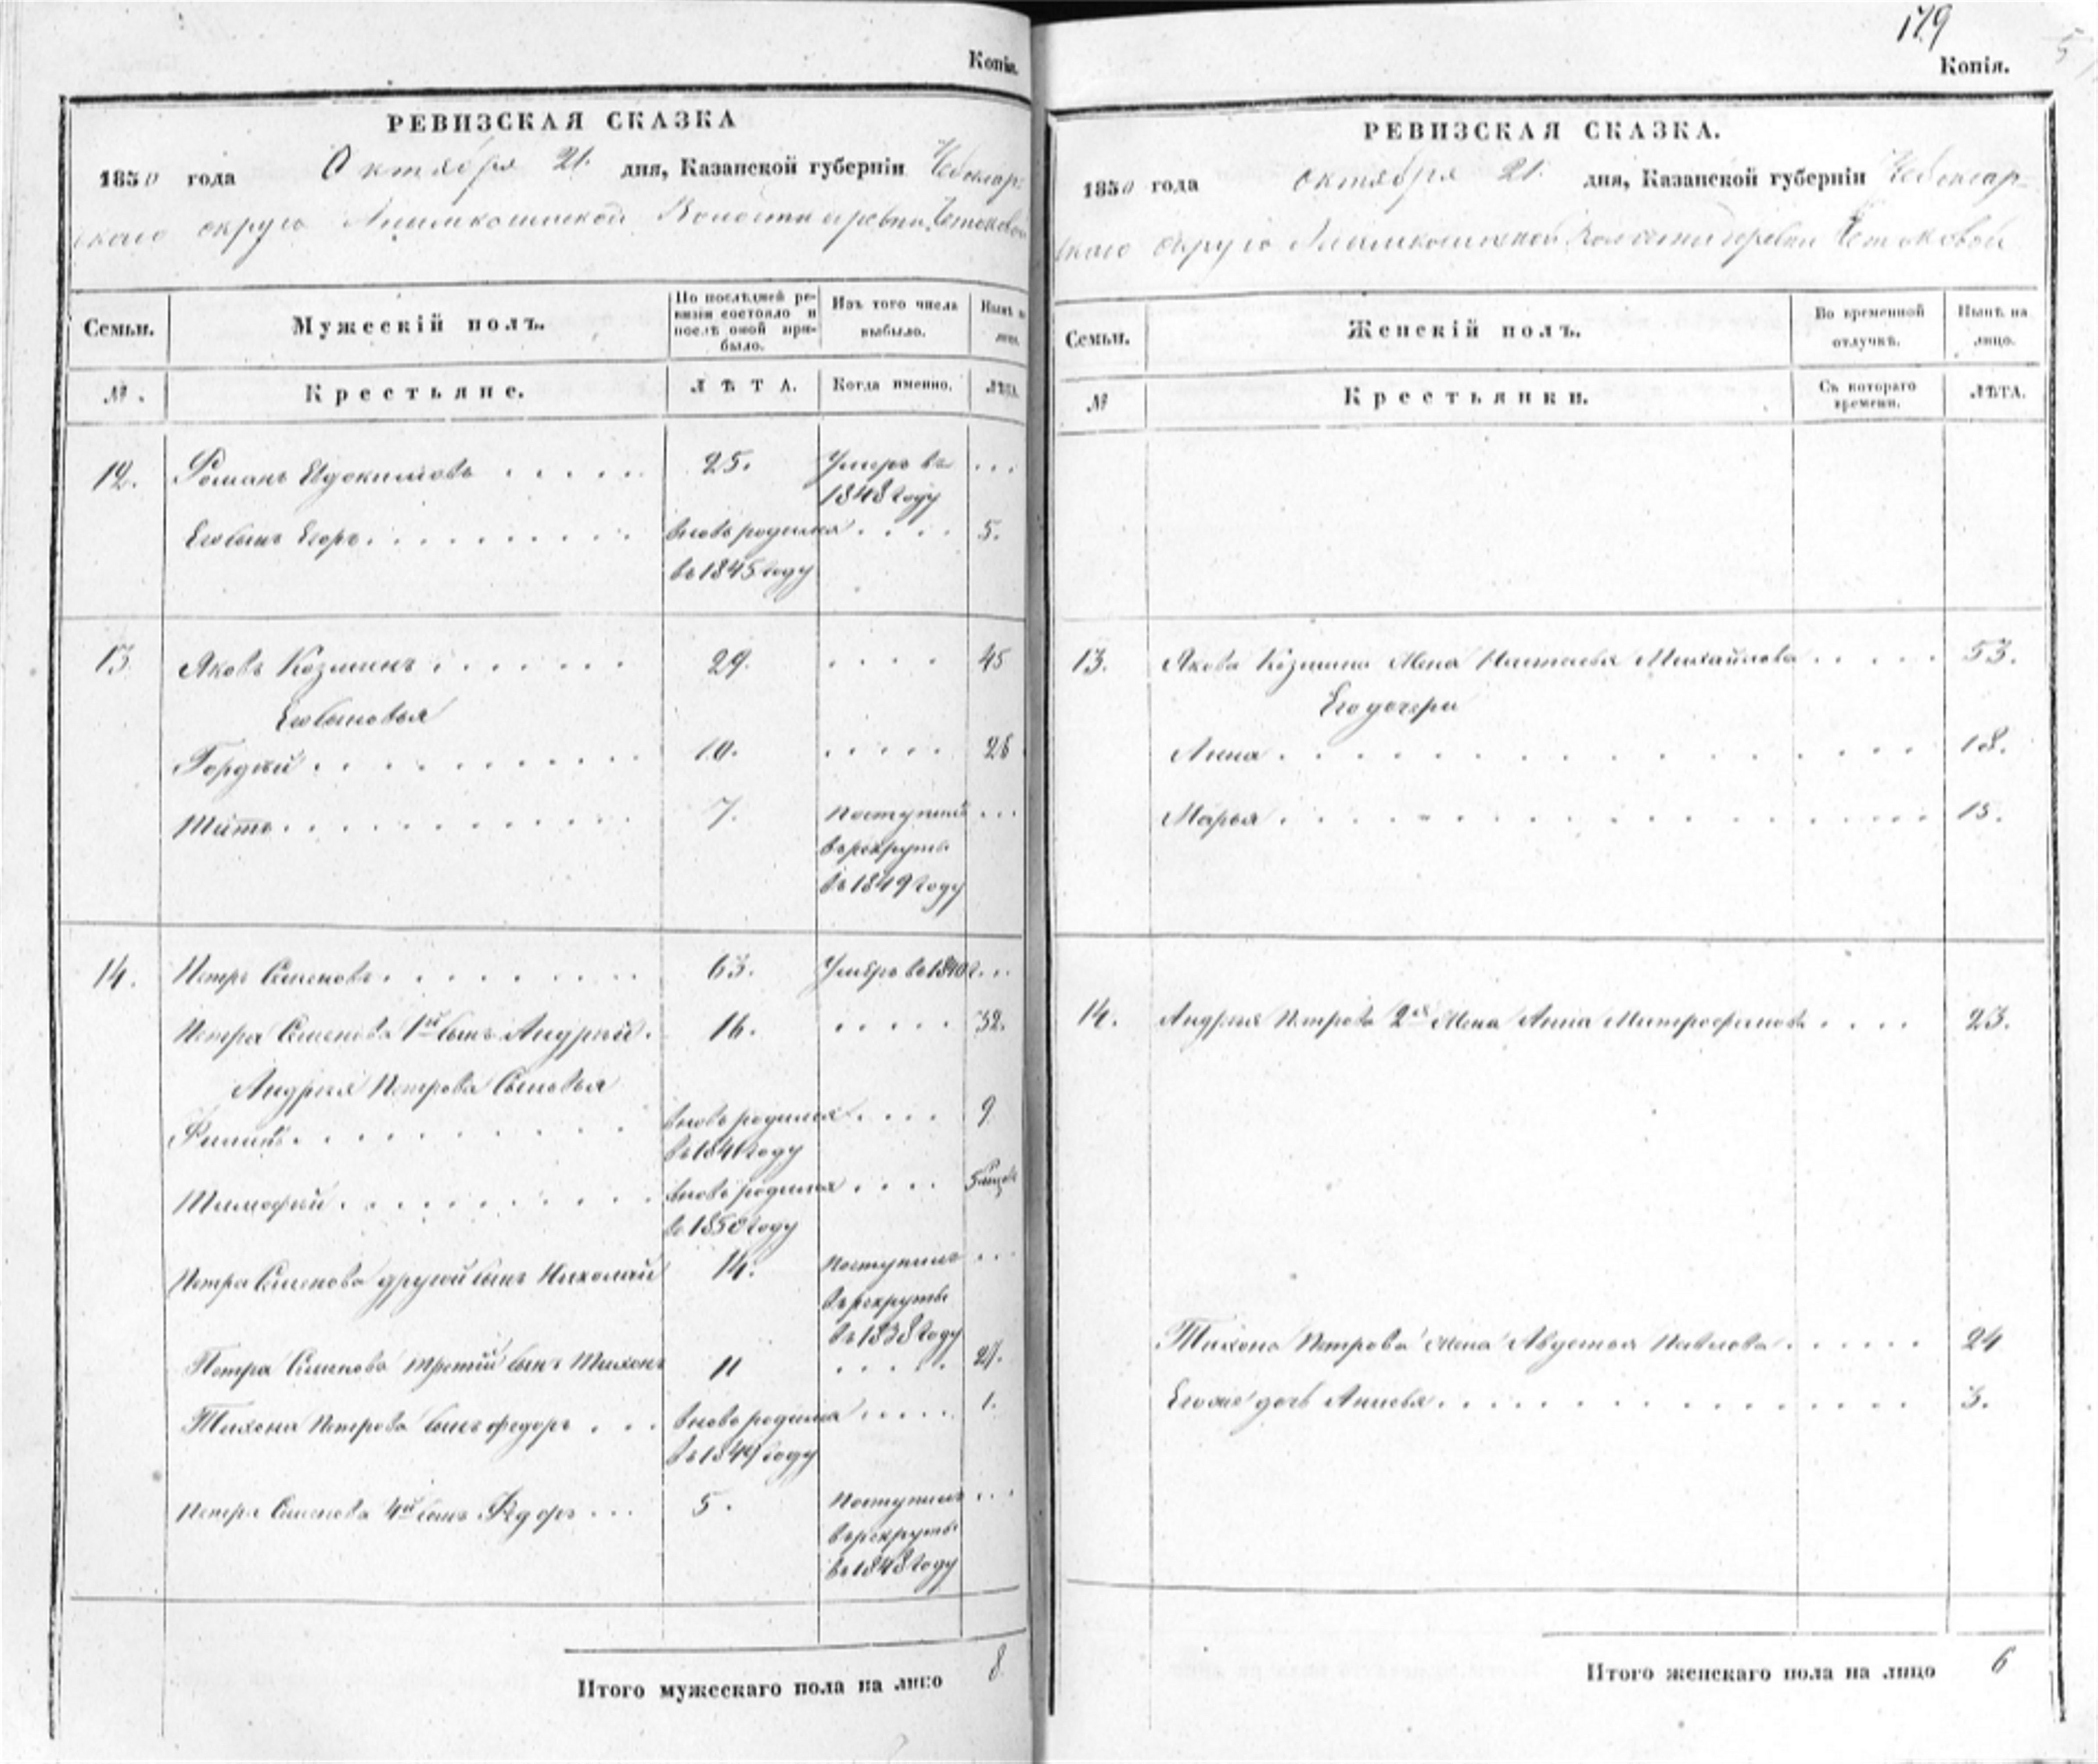 Копія.
РЕВИЗСКАЯ СКАЗКА
1850 года Октября 21. дня, Казанской губерніи Чебоксар-
скаго округа Волости деревни
Семьи. Мужескій полъ. По послѣдней ре-визіи состояло и послѣ оной при-было. Изъ того числа выбыло. Нынѣ на лицо.
№. Крестьяне. ЛѢТА. Когда именно. ЛѢТА.
12. Романъ Евдокимовъ . . . . . 25. Умеръ въ . . .
1848 году
Его сынъ Егоръ . . . . . . . . . . вновь родился . . . . 5.
въ 1845 году
13 Яковъ Козминъ . . . . . . 29. . . . . 45
Его сыновья
Гордѣй . . . . . . . . . . 10. . . . . . 26
Титъ . . . . . . . . . . . 7. Поступилъ . . .
въ рекруты
въ 1849 году
14. Петръ Семеновъ . . . . . . . . 63. Умеръ въ 1840 г. . .
Петра Семенова 1й сынъ Андрей . 16. . . . . . 32.
Андрея Петрова Сыновья
Филипъ . . . . . . . . . вновь родился . . . . 9
въ 1841 году
Тимофей . . . . . . . . . вновь родился . . . . 5 мцовъ
въ 1850 году
Петра Семенова другой сынъ Николай 14. Поступилъ . . .
въ рекруты
въ 1838 году
Петра Семенова третій сынъ Тихонъ 11 . . . . . 27.
Тихона Петрова сынъ Федоръ . . . вновь родился . . . . . 1.
въ 1849 году
Петра Семенова 4й сынъ Федоръ . . . 5. Поступилъ . . .
въ рекруты
въ 1848 году
Итого мужескаго пола на лицо 8
179
Копія.
РЕВИЗСКАЯ СКАЗКА.
1850 года октября 21. дня, Казанской губерніи Чебоксар-
скаго округа Волости деревни
Семьи. Женскій полъ. Во временной отлучкѣ. Нынѣ на лицо.
№ Крестьянки. Съ котораго времени. ЛѢТА.
13. Якова Козмина жена Настасья Михайлова . . . . . 53.
Его дочери
Анна . . . . . . . . . . . . . . . . 18.
Марья . . . . . . . . . . . . . . . . 15.
14. Андрея Петрова 2я жена Анна Митрофанова . . . . 23.
Тихона Петрова жена Авдотья Павлова . . . . . . 24
Его же дочь . . . . . . . . . . . . . . . 3.
Итого женскаго пола на лицо 6